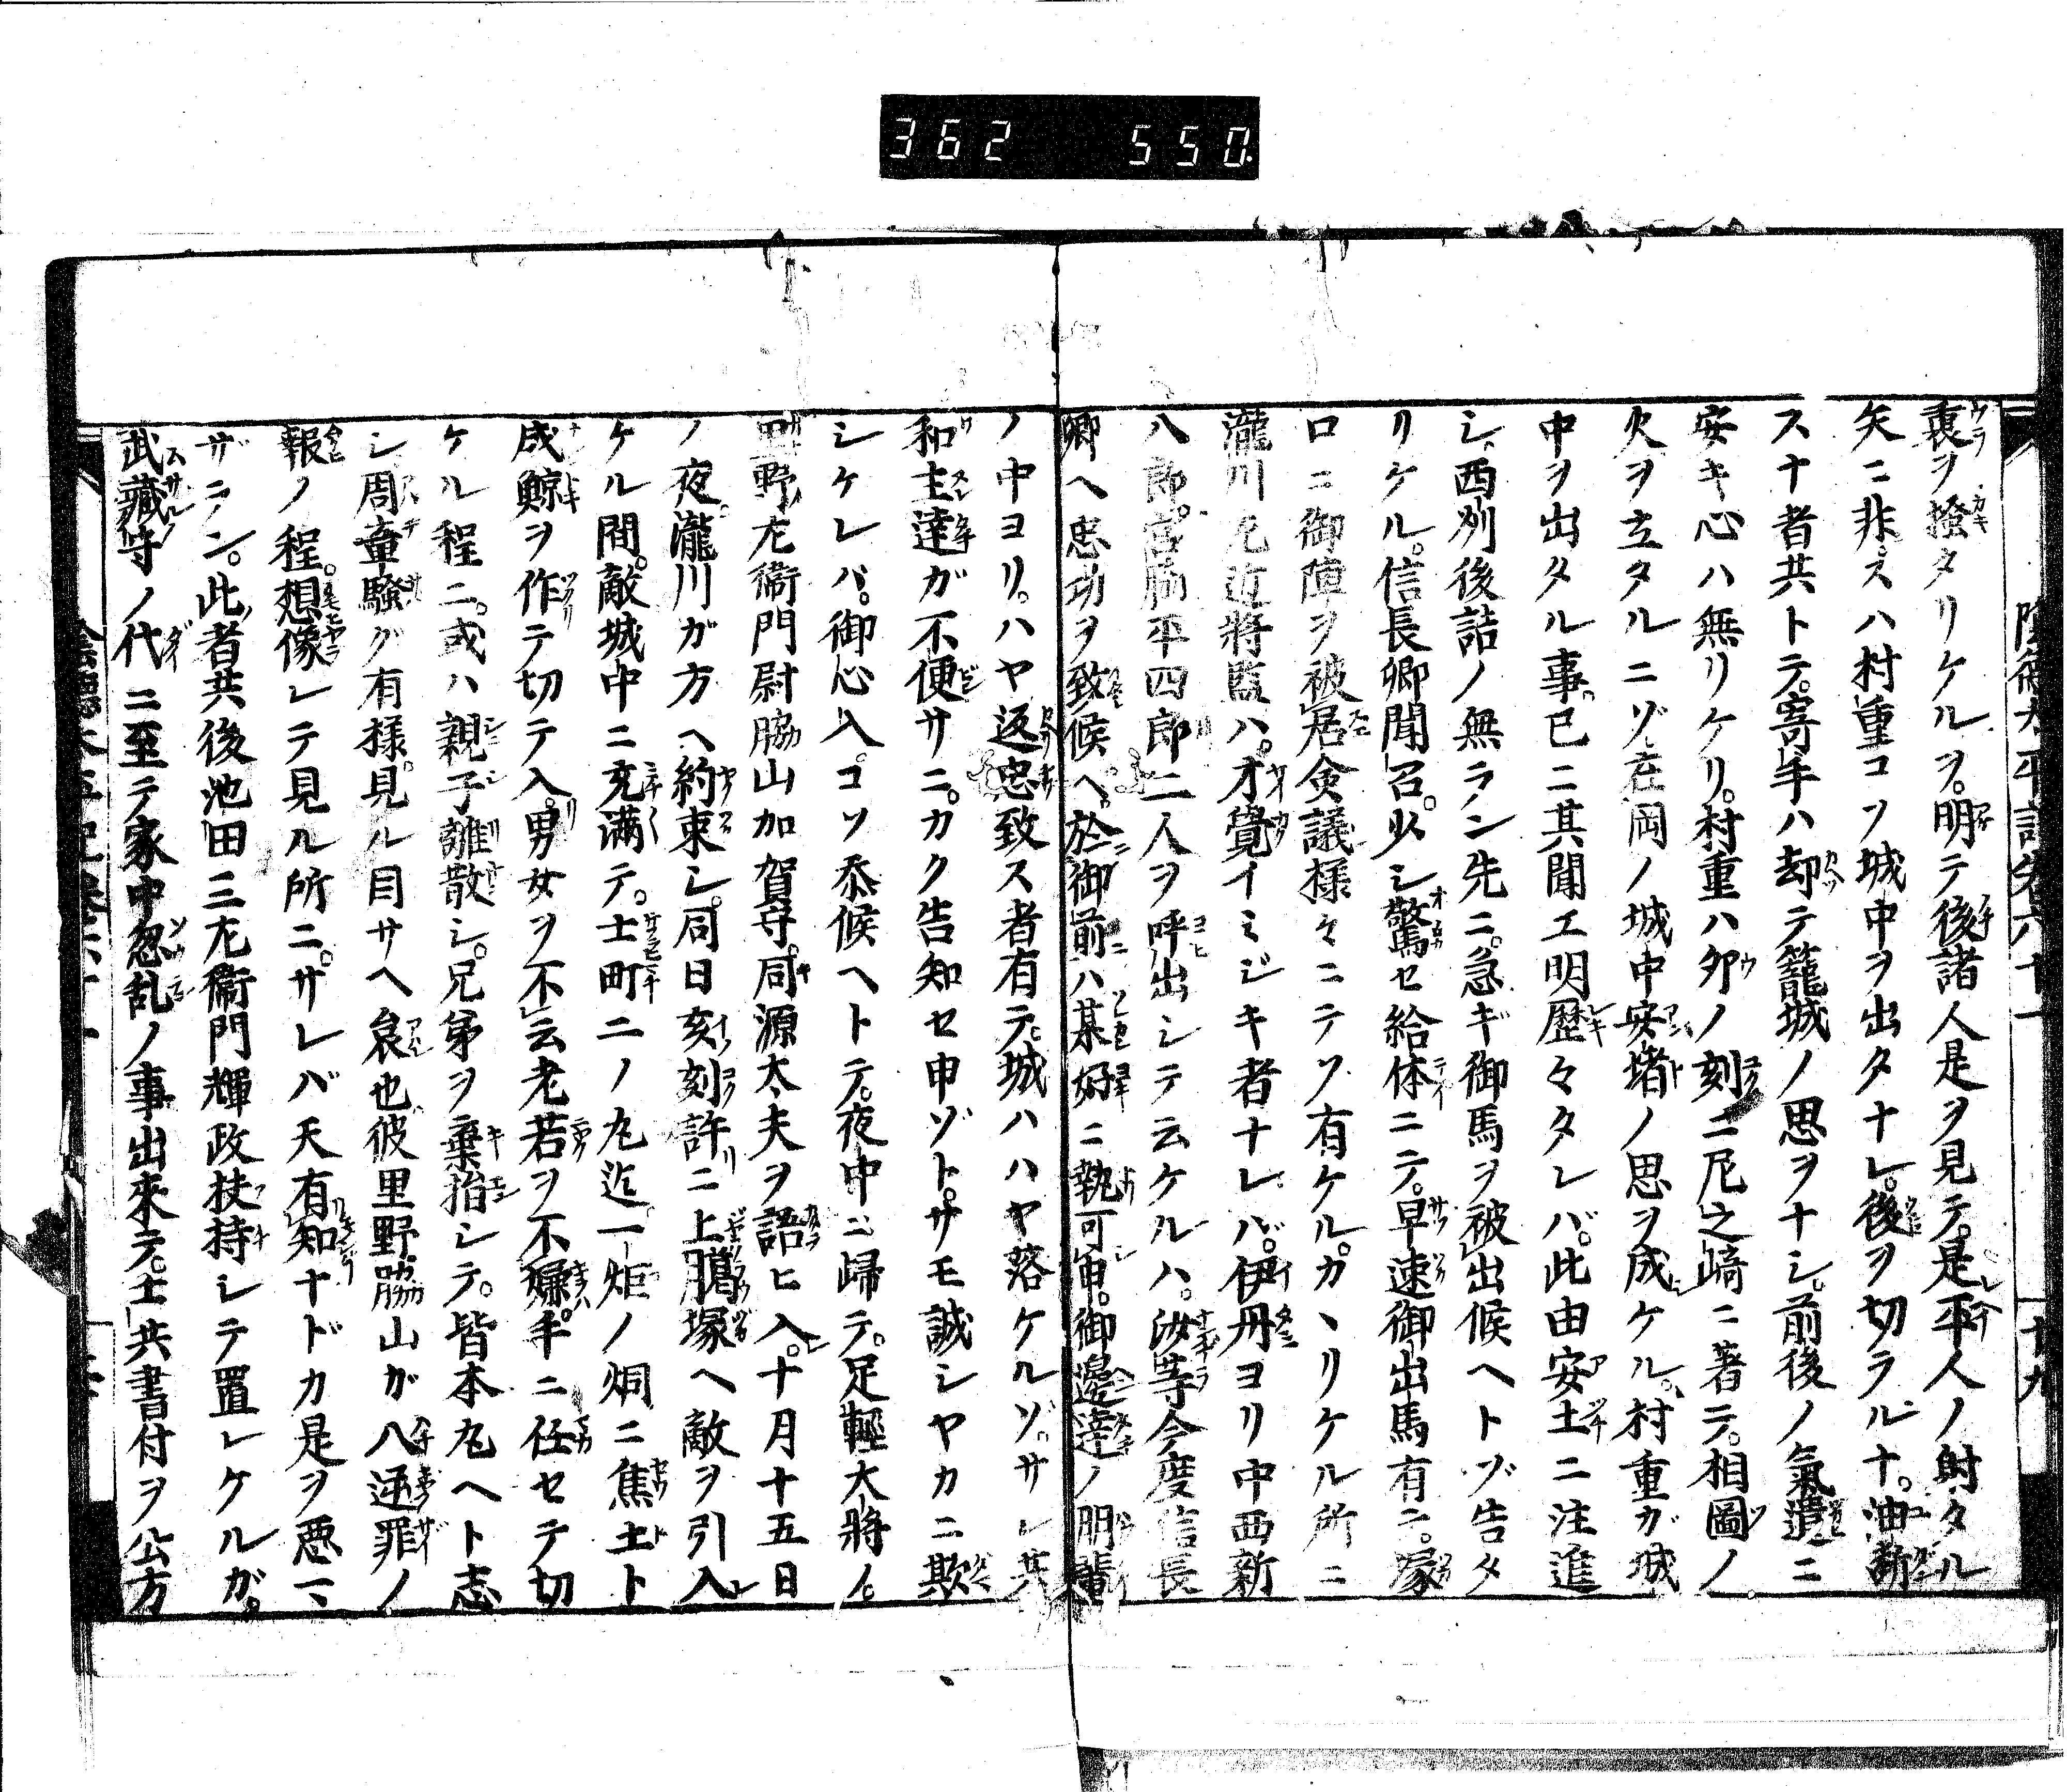 362 550
裏ヲ掻タリケルヲ。明テ後諸人是ヲ見テ。是平人ノ射タル
矢ニ非ズスハ村重コソ城中ヲ出タナレ。後ヲ切ラルナ。油断
スナ者共トテ。寄手ハ却テ籠城ノ思ヲナシ。前後ノ氣遣ニ
安キ心ハ無リケリ。村重ハ卯ノ刻ニ尼之﨑ニ著テ。相圖ノ
火ヲ立タルニゾ在岡ノ城中安堵ノ思ヲ成ケル。村重ガ城
中ヲ出タル事。已ニ其聞エ明歴々タレバ。此由安土ニ注進
シ。西列後詰ノ無ラン先ニ。急ギ御馬ヲ被出候ヘトゾ告タ
リケル。信長卿聞召。少シ驚セ給体ニテ。早速御出馬有テ。塚
口ニ御陣ヲ被居僉議様々ニテソ有ケル。カヽリケル所ニ
瀧川左近將監ハ。才覺イミジキ者ナレバ。伊丹ヨリ中西新
八郎。宮脇平四郎二人ヲ呼出シテ云ケルハ。汝等今度信長
卿ヘ忠功ヲ致候ヘ。於御前ハ某好ニ執可申。御邊達ノ朋輩
ノ中ヨリ。ハヤ返忠致ス者有テ。城ハハヤ落ケルゾ。サレ共
和主達ガ不便サニ。カク告知セ申ゾト。サモ誠シヤカニ欺
シケレバ。御心入。コソ忝候ヘトテ。夜中ニ歸テ。足輕大將ノ。
里野左衛門尉脇山加賀守。同源太夫ヲ語ヒ入。十月十五日
ノ夜。瀧川ガ方ヘ約束シ。同日亥刻許ニ上臈塚ヘ敵ヲ引入
ケル間。敵城中ニ充満テ。士町二ノ丸迄一炬ノ烟ニ焦土ト
成鯨ヲ作テ切テ入。男女ヲ不云老若ヲ不嫌。手ニ任セテ切
ケル程ニ。或ハ親子離散シ。兄弟ヲ棄捐シテ。皆本丸ヘト志
シ周章騒グ有様。見ル目サヘ哀也彼里野。脇山ガ八逆罪ノ。
報ノ程。想像レテ見ル所ニ。サレバ天有知ナドカ是ヲ悪ーマ
ザラン。此者共後池田三左衛門輝政扶持シテ置レケルガ。
武藏守ノ代ニ至テ家中忽乱ノ事出來テ。士共書付ヲ公方